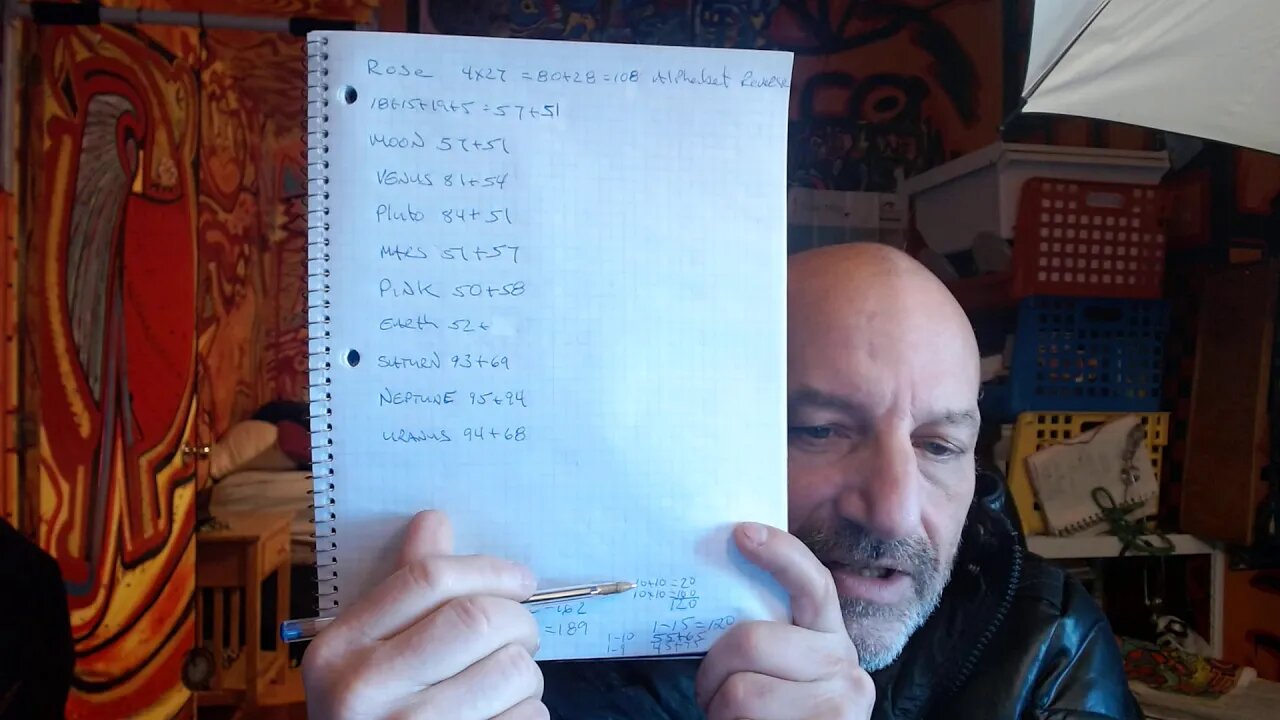 Rose 4x27 = 80+28 = 108 Alphabet Reverse
18+15+19+5 = 57+51
MOON 57+51
VENUS 81+54
Pluto 84+51
MARS 51+57
PINK 50+58
Earth 52+
SATURN 93+69
NEPTUNE 95+94
URANUS 94+68
10+10=20
10x10=100
120
=162
=189
1-15=120
1-10 55+65
1-9 45+75